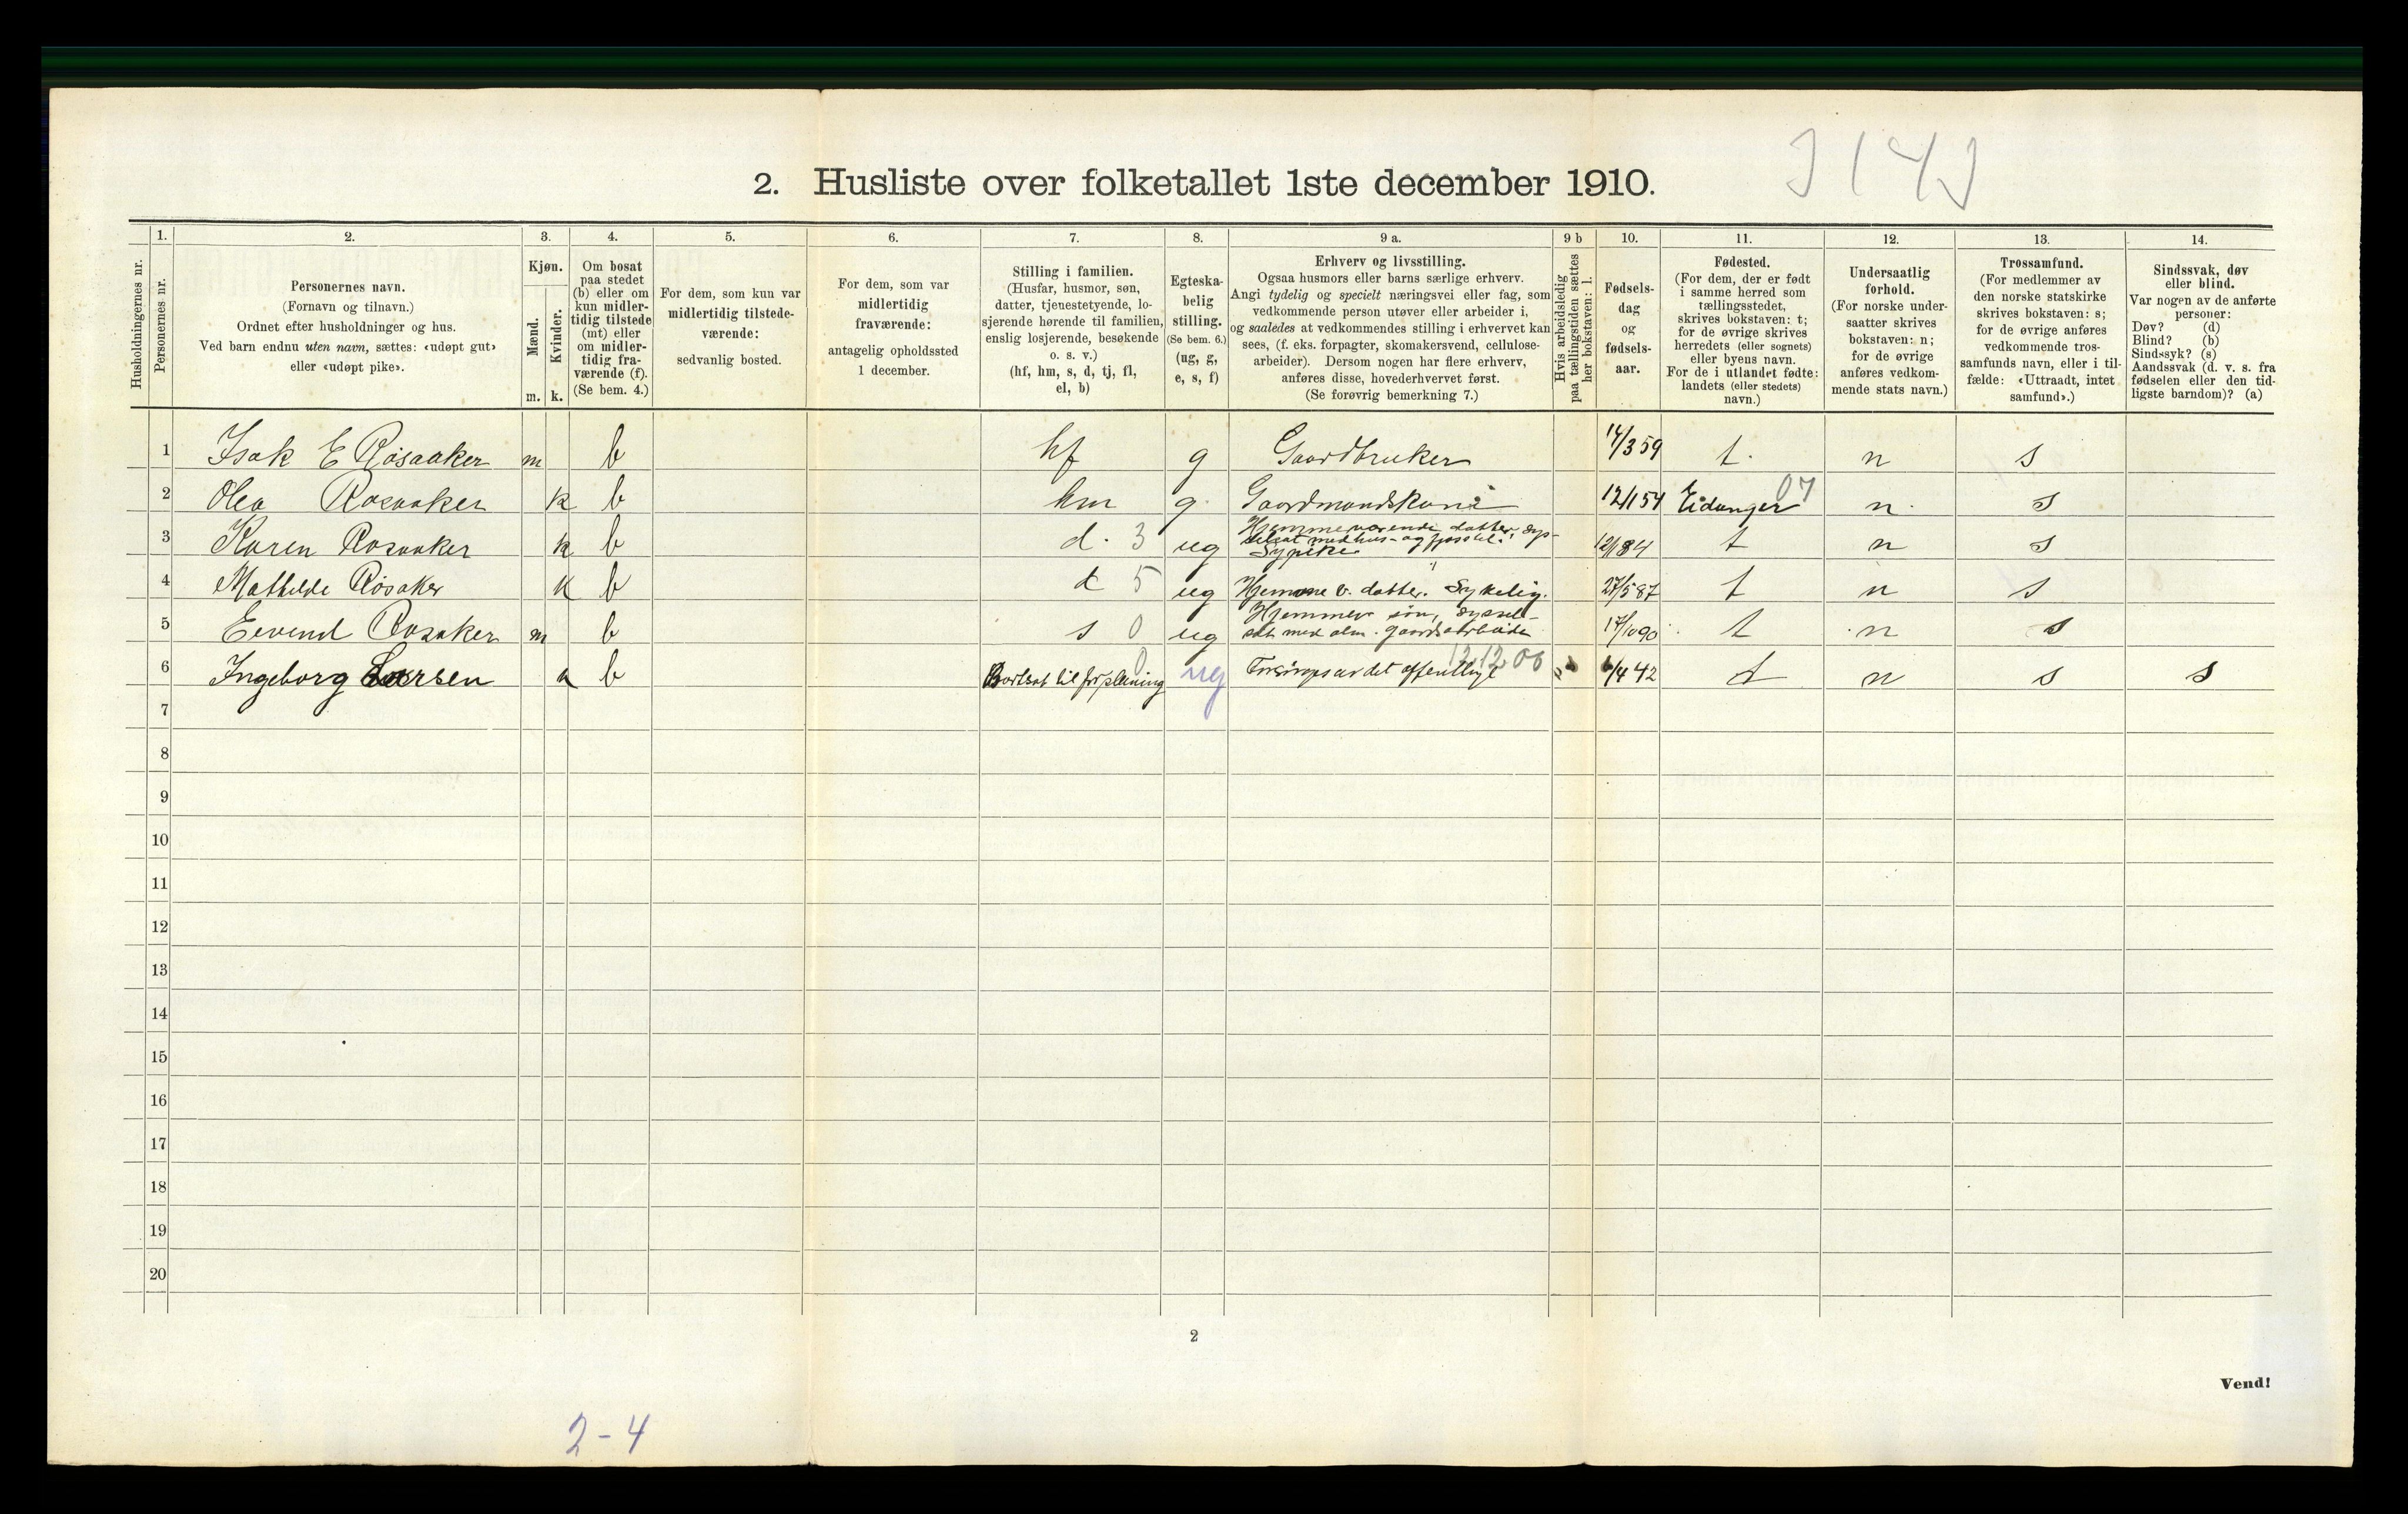 2. Husliste over folketallet 1ste december 1910.
Husholdningernes nr.
1.
Personernes nr.
2.
Personernes navn.
(Fornavn og tilnavn.)
Ordnet efter husholdninger og hus.
Ved barn endnu uten navn, sættes: «udøpt gut»
eller «udøpt pike».
3.
Kjøn.
Mænd.
Kvinder.
m. k.
4.
Om bosat
paa stedet
(b) eller om
kun midler-
tidig tilstede
(mt) eller
om midler-
tidig fra-
værende (f).
(Se bem. 4.)
5.
For dem, som kun var
midlertidig tilstede-
værende:
sedvanlig bosted.
6.
For dem, som var
midlertidig
fraværende:
antagelig opholdssted
1 december.
7.
Stilling i familien.
(Husfar, husmor, søn,
datter, tjenestetyende, lo-
sjerende hørende til familien,
enslig losjerende, besøkende
o. s. v.)
(hf, hm, s, d, tj, fl,
el, b)
8.
Egteska-
belig
stilling.
(Se bem. 6.)
(ug, g,
e, s, f)
9 a.
Erhverv og livsstilling.
Ogsaa husmors eller barns særlige erhverv.
Angi tydelig og specielt næringsvei eller fag, som
vedkommende person utøver eller arbeider i,
og saaledes at vedkommendes stilling i erhvervet kan
sees, (f. eks. forpagter, skomakersvend, cellulose-
arbeider). Dersom nogen har flere erhverv,
anføres disse, hovederhvervet først.
(Se forøvrig bemerkning 7.)
9 b
Hvis arbeidsledig
paa tællingstiden sættes
her bokstaven: l.
10.
Fødsels-
dag
og
fødsels-
aar.
11.
Fødested.
(For dem, der er født
i samme herred som
tællingsstedet,
skrives bokstaven: t;
for de øvrige skrives
herredets (eller sognets)
eller byens navn.
For de i utlandet fødte:
landets (eller stedets)
navn.)
12.
Undersaatlig
forhold.
(For norske under-
saatter skrives
bokstaven: n;
for de øvrige
anføres vedkom-
mende stats navn.)
13.
Trossamfund.
(For medlemmer av
den norske statskirke
skrives bokstaven: s;
for de øvrige anføres
vedkommende tros-
samfunds navn, eller i til-
fælde: «Uttraadt, intet
samfund».)
14.
Sindssvak, døv
eller blind.
Var nogen av de anførte
personer:
Døv? (d)
Blind? (b)
Sindssyk? (s)
Aandssvak (d. v. s. fra
fødselen eller den tid-
ligste barndom)? (a)
1 Isak E Røsaaker m b hf g Gaardbruker 14/3 59 t. n s
2 Olea Rosaaker k b hm g. Gaardmandskone 12/1 54 Eidanger 07 n. s
3 Karen Rosaaker k b d. 3 ug Hjemmeværende datter, sys-
selsat med hus- og fjøsstel.
Sypike 12/1 84 t n s
4 Mathilde Røsaker k b d 5 ug Hjemme v. datter. Sykelig. 27/5 87 t n s
5 Eevend Rosaker m b s 0 ug Hjemmev søn, syssel-
sat med alm. gaardsarbeide 17/10 90 t n s
6 Ingeborg Larsen k b Bortsat til forpleining 0 ug Forsørges av det offentlige 12.12.00 6/4 42 t n s s
7
8
9
10
11
12
13
14
15
16
17
18
19
20
2
Vend!
2-4